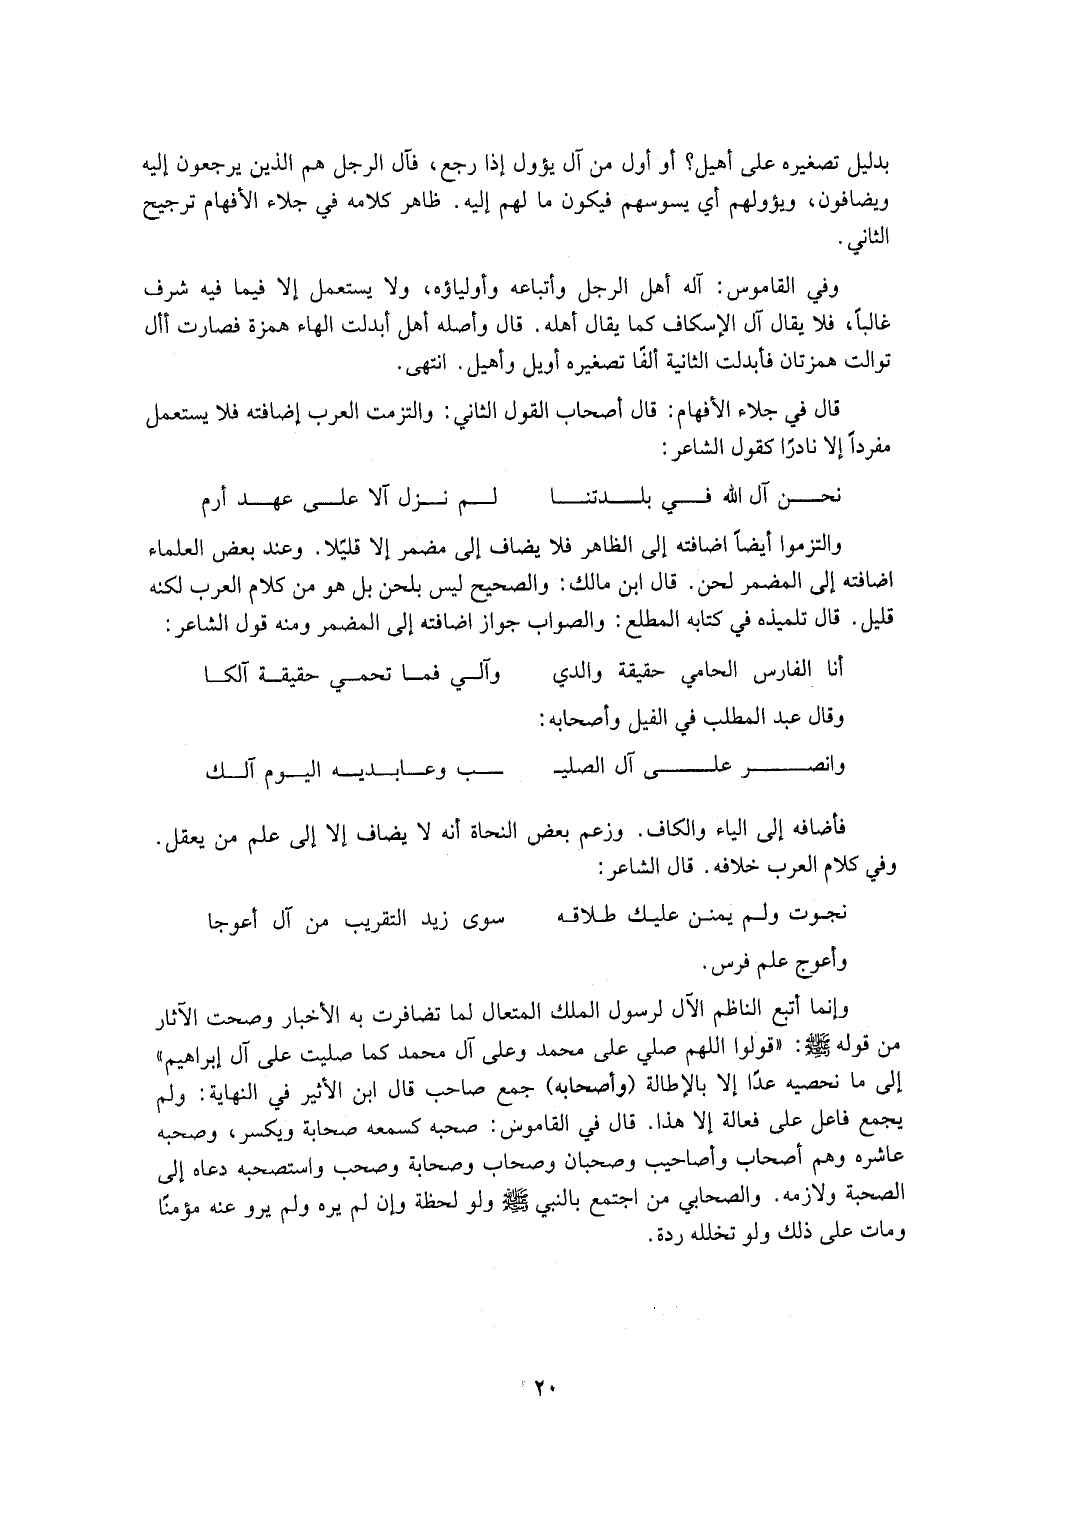 بدليل تصغيره على أهيل؟ أو أول من آل يؤول إذا رجع، فآل الرجل هم الذين يرجعون إليه
ويضافون، ويؤولهم أي يسوسهم فيكون ما لهم إليه. ظاهر كلامه في جلاء الأفهام ترجيح
الثاني.
وفي القاموس: آله أهل الرجل وأتباعه وأولياؤه، ولا يستعمل إلا فيما فيه شرف
غالباً، فلا يقال آل الإسكاف كما يقال أهله. قال وأصله أهل أبدلت الهاء همزة فصارت أأل
توالت همزتان فأبدلت الثانية ألفًا تصغيره أويل وأهيل. انتهى.
قال في جلاء الأفهام: قال أصحاب القول الثاني: والتزمت العرب إضافته فلا يستعمل
مفرداً إلا نادرًا كقول الشاعر:
نحن آل الله في بلدتنا لم نزل آلا على عهد أرم
والتزموا أيضاً اضافته إلى الظاهر فلا يضاف إلى مضمر إلا قليًلا. وعند بعض العلماء
اضافته إلى المضمر لحن. قال ابن مالك: والصحيح ليس بلحن بل هو من كلام العرب لكنه
قليل. قال تلميذه في كتابه المطلع: والصواب جواز اضافته إلى المضمر ومنه قول الشاعر:
أنا الفارس الحامي حقيقة والدي وآلي فما تحمي حقيقة آلكا
وقال عبد المطلب في الفيل وأصحابه:
وانصر على آل الصليـ ـب وعابديه اليوم آلك
فأضافه إلى الياء والكاف. وزعم بعض النحاة أنه لا يضاف إلا إلى علم من يعقل.
وفي كلام العرب خلافه. قال الشاعر:
نجوت ولم يمنن عليك طلاقه سوى زيد التقريب من آل أعوجا
وأعوج علم فرس.
وإنما أتبع الناظم الآل لرسول الملك المتعال لما تضافرت به الأخبار وصحت الآثار
من قوله ﷺ: «قولوا اللهم صلي على محمد وعلى آل محمد كما صليت على آل إبراهيم»
إلى ما نحصيه عدًا إلا بالإطالة (وأصحابه) جمع صاحب قال ابن الأثير في النهاية: ولم
يجمع فاعل على فعالة إلا هذا. قال في القاموس: صحبه كسمعه صحابة ويكسر، وصحبه
عاشره وهم أصحاب وأصاحيب وصحبان وصحاب وصحابة وصحب واستصحبه دعاه إلى
الصحبة ولازمه. والصحابي من اجتمع بالنبي ﷺ ولو لحظة وإن لم يره ولم يرو عنه مؤمنًا
ومات على ذلك ولو تخلله ردة.
٢٠